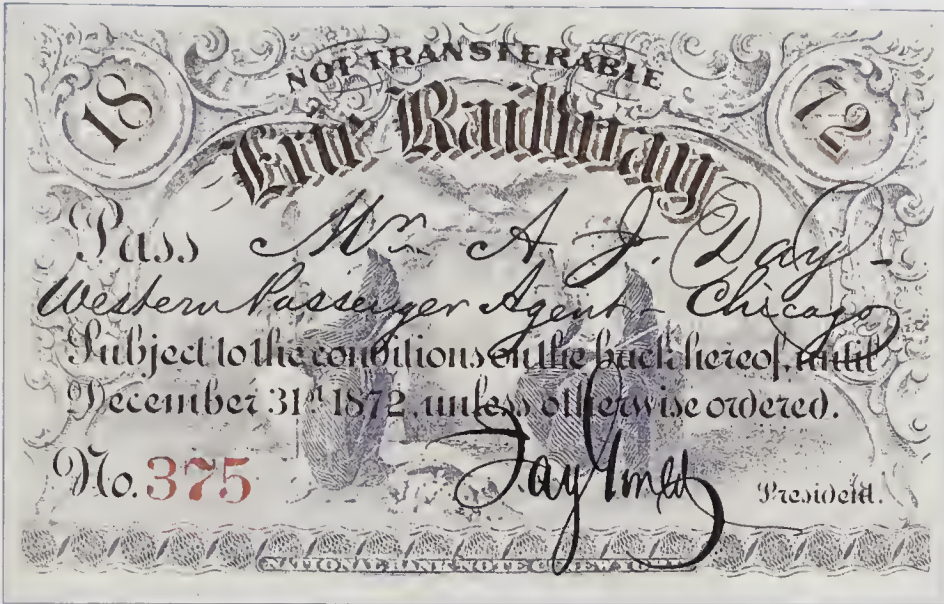 NOT TRANSFERABLE
18 72
Erie Railway
Pass Mr A. J. Day -
Western Passenger Agent - Chicago
Subject to the conditions on the back hereof, until
December 31st 1872, unless otherwise ordered.
No. 375 Jay Gould President.
NATIONAL BANK NOTE CO. NEW YORK